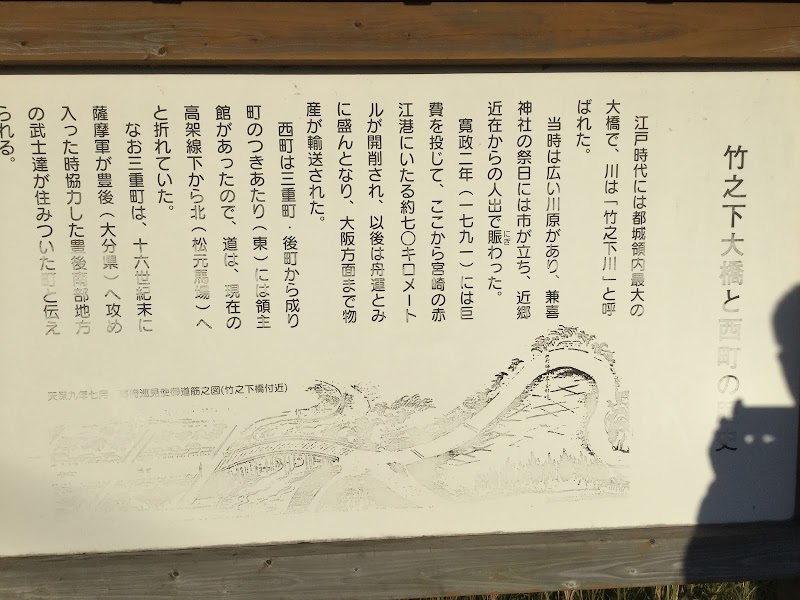 竹之下大橋と西町の歴史
江戸時代には都城領内最大の
大橋で、川は「竹之下川」と呼
ばれた。
当時は広い川原があり、兼喜
神社の祭日には市が立ち、近郷
近在からの人出で賑わった。
にぎ
寛政二年（一七九一）には巨
費を投じて、ここから宮崎の赤
江港にいたる約七〇キロメート
ルが開削され、以後は舟運とみ
に盛んとなり、大阪方面まで物
産が輸送された。
西町は三重町・後町から成り
町のつきあたり（東）には領主
館があったので、道は、現在の
高架線下から北（松元馬場）へ
と折れていた。
なお三重町は、十六世紀末に
薩摩軍が豊後（大分県）へ攻め
入った時協力した豊後南部地方
の武士達が住みついた町と伝え
られる。
天保九年七月 巡見使御道筋之図(竹之下橋付近)